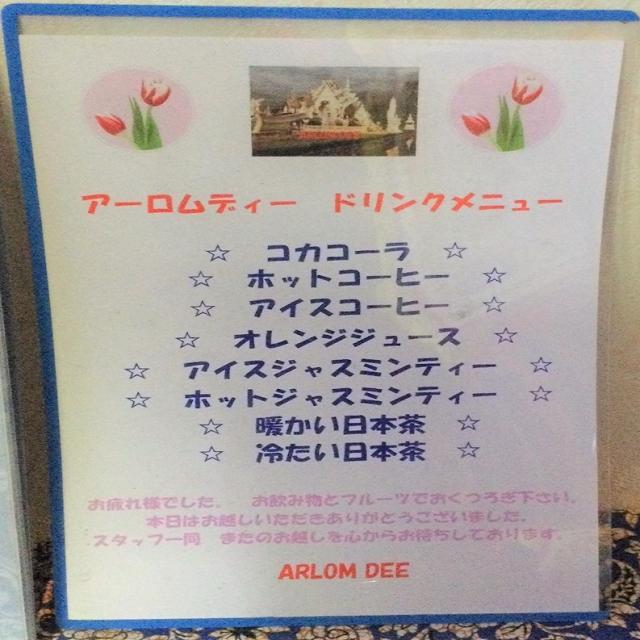 アーロムディー　ドリンクメニュー
☆　コカコーラ　☆
☆　ホットコーヒー　☆
☆　アイスコーヒー　☆
☆　オレンジジュース　☆
☆　アイスジャスミンティー　☆
☆　ホットジャスミンティー　☆
☆　暖かい日本茶　☆
☆　冷たい日本茶　☆
お疲れ様でした。　お飲み物とフルーツでおくつろぎ下さい。
本日はお越しいただきありがとうございました。
スタッフ一同　またのお越しを心からお待ちしております。
ARLOM DEE